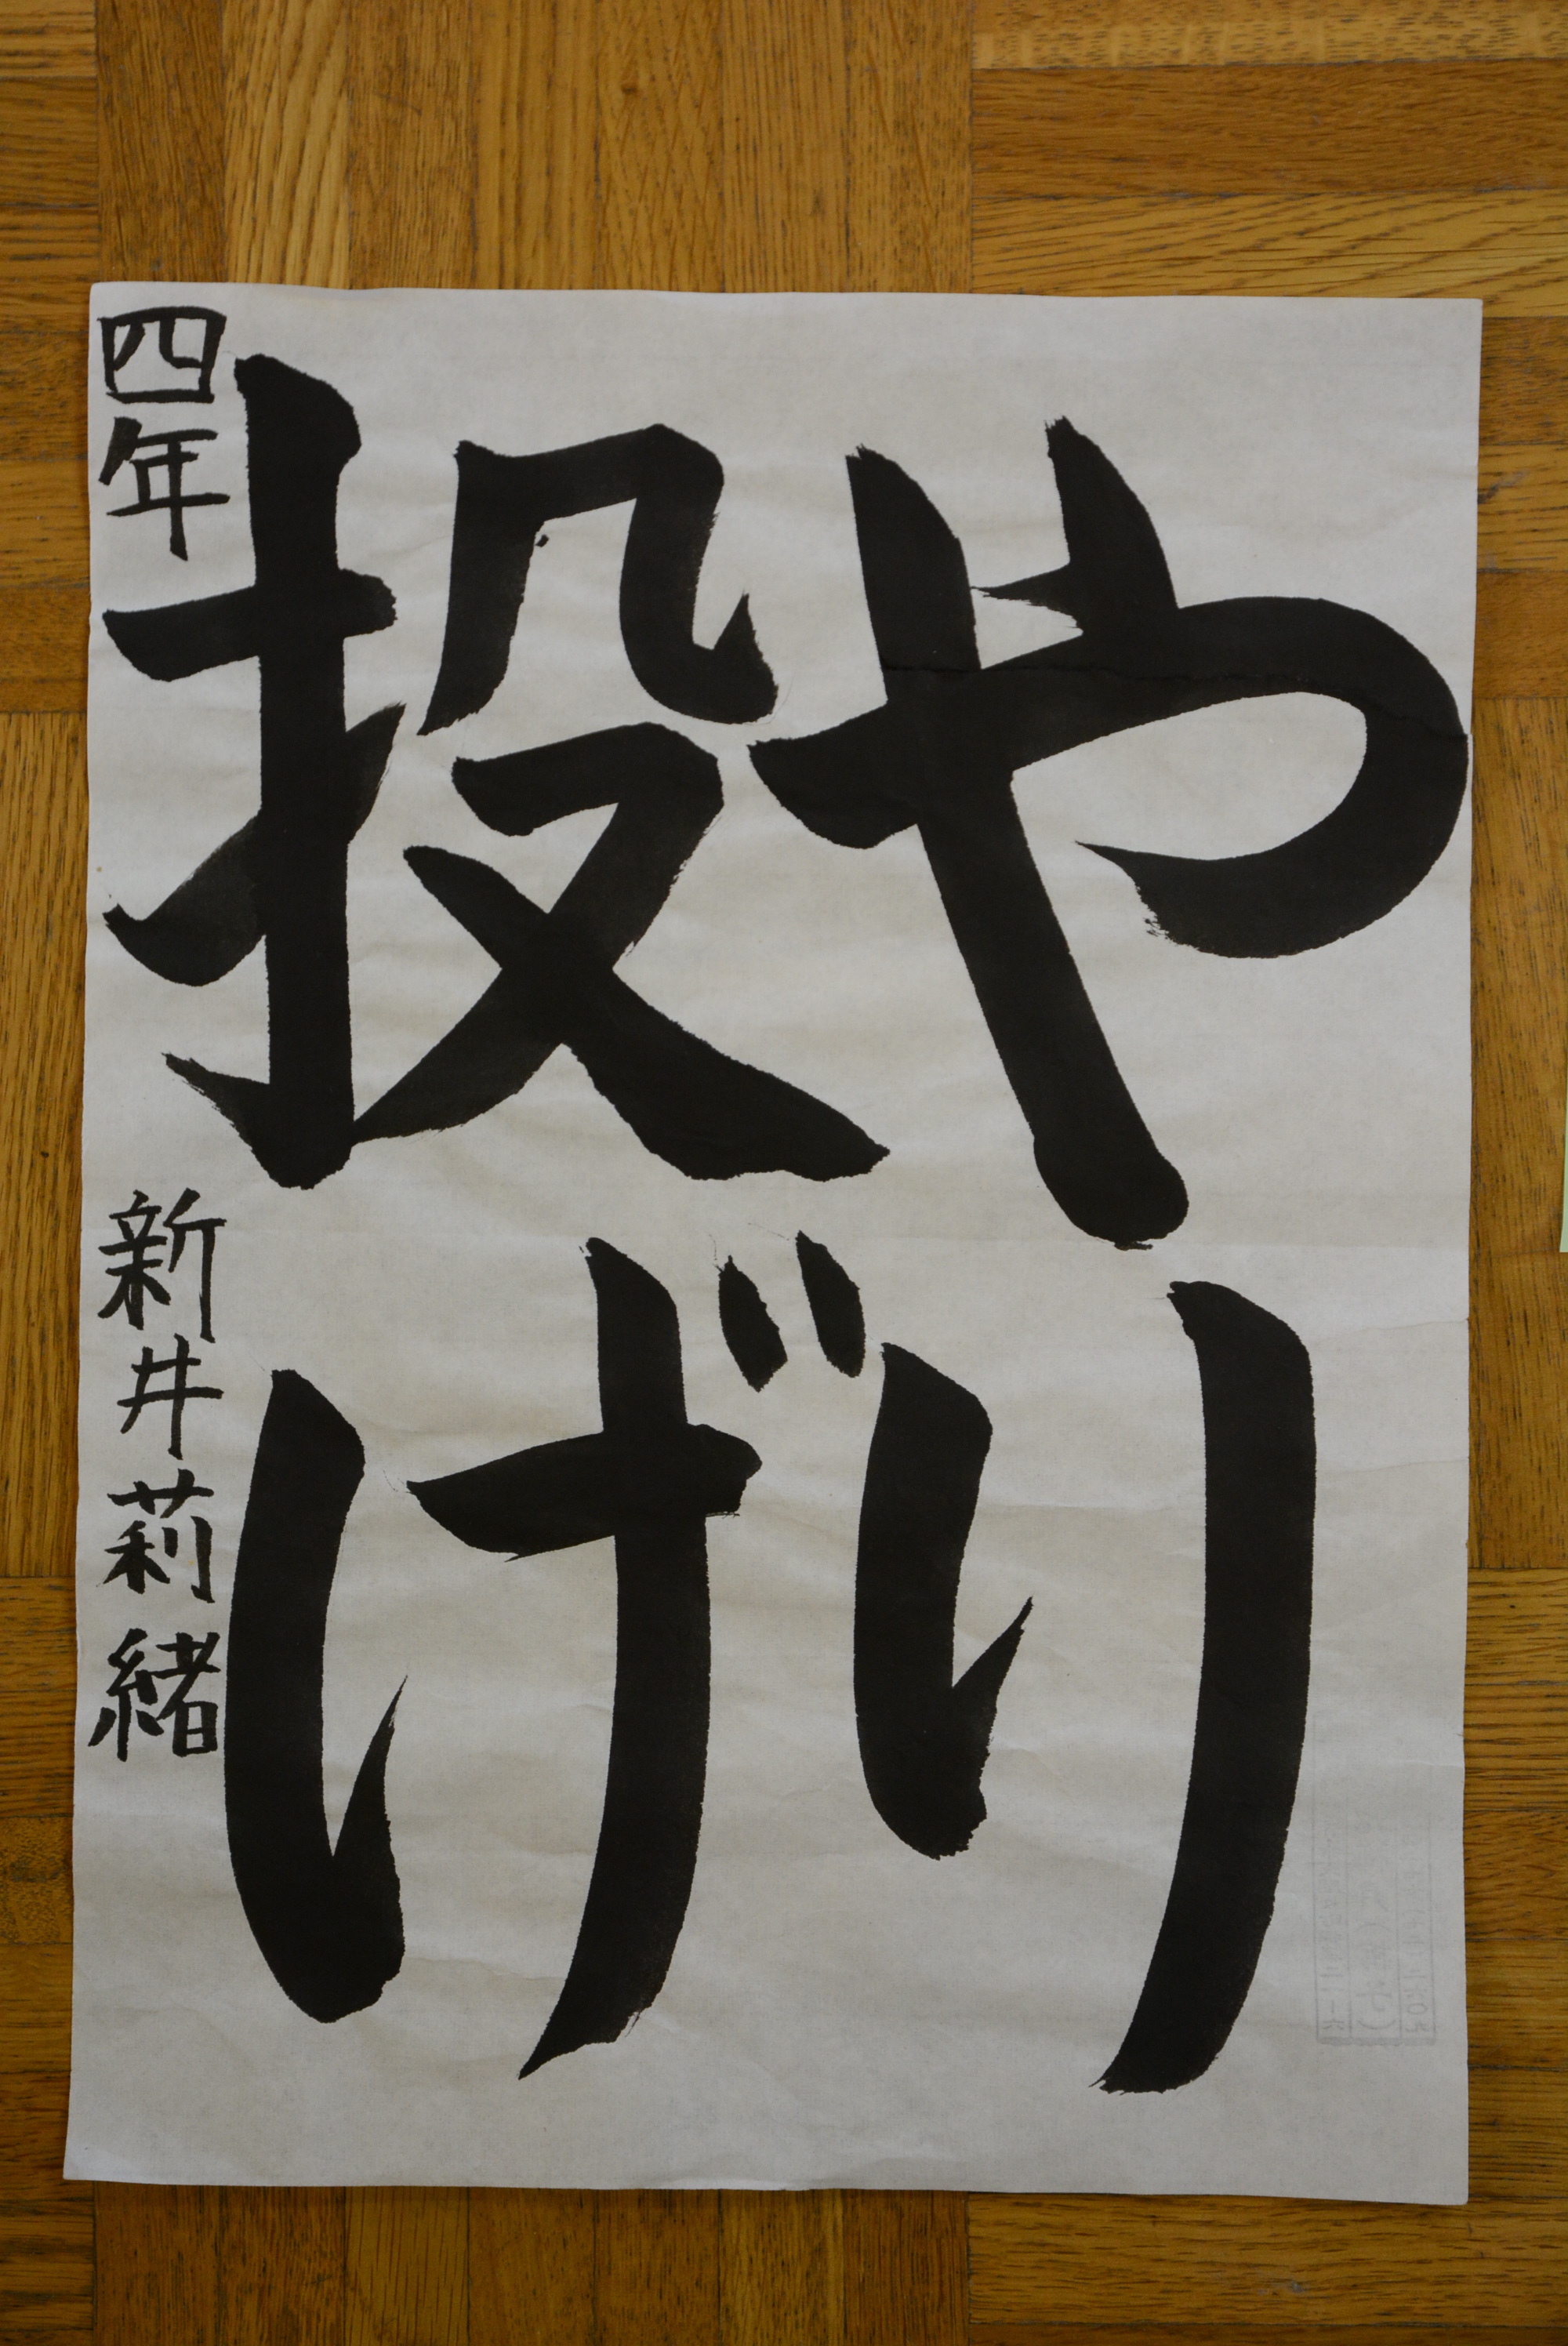 やり
投げ
四年 新井莉緒